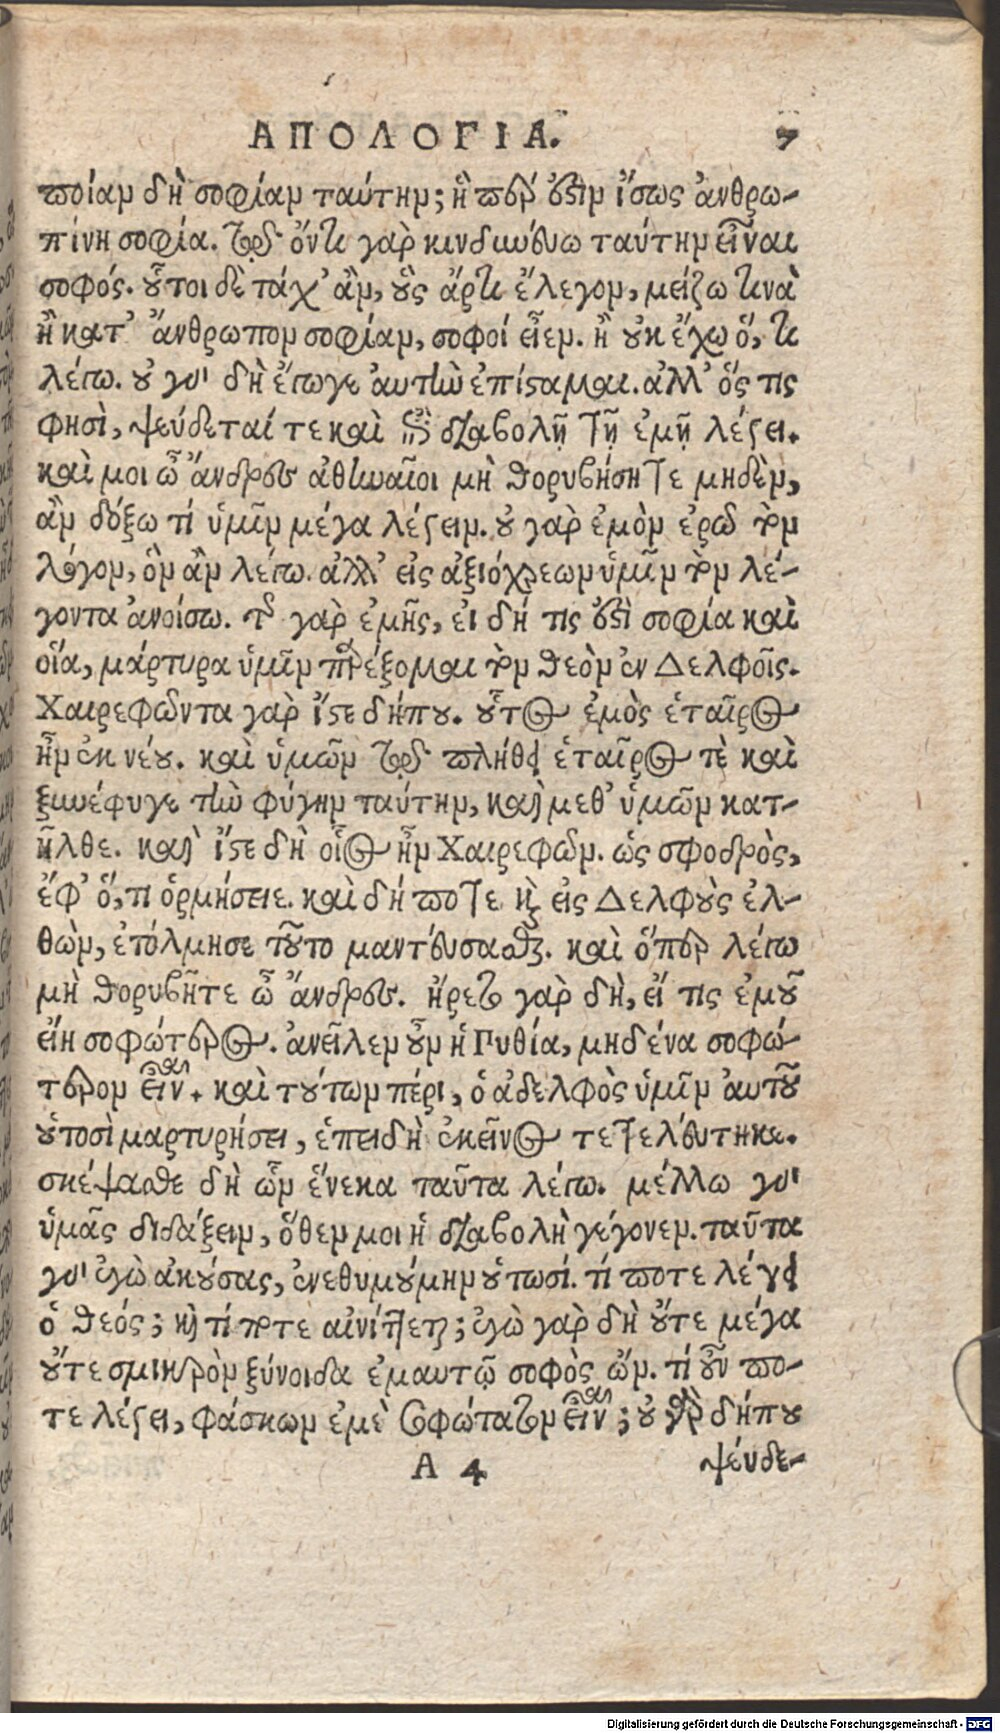 ΑΠΟΛΟΓΙΑ. 7
ποίαν δὴ σοφίαν ταύτην; ἥ περ ἐστὶν ἴσως ἀνθρω-
πίνη σοφία. τῷ ὄντι γὰρ κινδυνεύω ταύτην εἶναι
σοφός. οὗτοι δὲ τάχ' ἂν, οὓς ἄρτι ἔλεγον, μείζω τινὰ
ἢ κατ' ἄνθρωπον σοφίαν, σοφοὶ εἶεν. ἢ οὐκ ἔχω ὅ, τι
λέγω. οὐ γὰρ δὴ ἔγωγε αὐτὴν ἐπίσταμαι. ἀλλ' ὅς τις
φησὶ, ψεύδεταί τε καὶ ἐπὶ διαβολῇ τῇ ἐμῇ λέγει.
καί μοι ὦ ἄνδρες ἀθηναῖοι μὴ θορυβήσητε μηδὲν,
ἂν δόξω τί ὑμῖν μέγα λέγειν. οὐ γὰρ ἐμὸν ἐρῶ τὸν
λόγον, ὃν ἂν λέγω. ἀλλ' εἰς ἀξιόχρεων ὑμῖν τὸν λέ-
γοντα ἀνοίσω. τῆς γὰρ ἐμῆς, εἰ δή τις ἐστὶ σοφία καὶ
οἵα, μάρτυρα ὑμῖν παρέξομαι τὸν θεὸν ἐν Δελφοῖς.
Χαιρεφῶντα γὰρ ἴστε δήπου. οὗτος ἐμὸς ἑταῖρος
ἦν ἐκ νέου. καὶ ὑμῶν τῷ πλήθει ἑταῖρός τε καὶ
ξυνέφυγε τὴν φύγην ταύτην, καὶ μεθ' ὑμῶν κατ-
ῆλθε. καὶ ἴστε δὴ οἷος ἦν Χαιρεφῶν. ὡς σφοδρὸς,
ἐφ' ὅ, τι ὁρμήσειε. καὶ δή ποτε καὶ εἰς Δελφοὺς ἐλ-
θὼν, ἐτόλμησε τοῦτο μαντεύσασθαι. καὶ ὅπερ λέγω
μὴ θορυβῆτε ὦ ἄνδρες. ἤρετο γὰρ δὴ, εἴ τις ἐμοῦ
εἴη σοφώτερος. ἀνεῖλεν οὖν ἡ Πυθία, μηδένα σοφώ-
τερον εἶναι. καὶ τούτων πέρι, ὁ ἀδελφὸς ὑμῖν αὐτοῦ
οὑτοσὶ μαρτυρήσει, ἐπειδὴ ἐκεῖνος τετελεύτηκε.
σκέψασθε δὴ ὧν ἕνεκα ταῦτα λέγω. μέλλω γὰρ
ὑμᾶς διδάξειν, ὅθεν μοι ἡ διαβολὴ γέγονεν. ταῦτα
γὰρ ἐγὼ ἀκούσας, ἐνεθυμούμην οὑτωσί. τί ποτε λέγει
ὁ θεός; καὶ τί ποτε αἰνίττεται; ἐγὼ γὰρ δὴ οὔτε μέγα
οὔτε σμικρὸν ξύνοιδα ἐμαυτῷ σοφὸς ὤν. τί οὖν πο-
τε λέγει, φάσκων ἐμὲ σοφώτατον εἶναι; οὐ γὰρ δήπου
Α 4 ψεύδε-
Digitalisierung gefördert durch die Deutsche Forschungsgemeinschaft - DFG